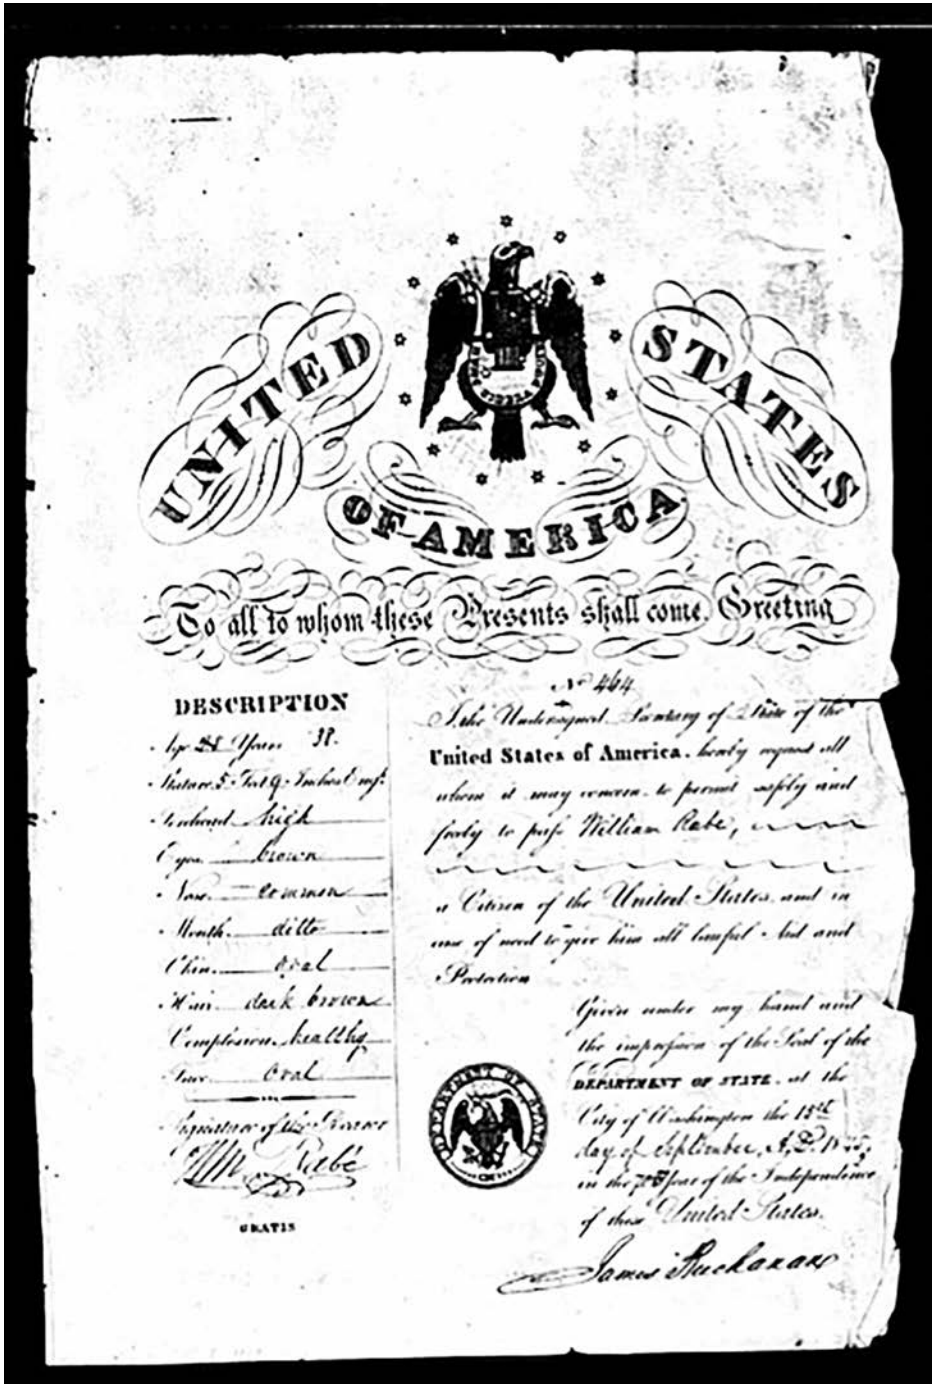 UNITED
STATES
OF AMERICA
To all to whom these Presents shall come, Greeting
DESCRIPTION
Age Years 38.
Stature 5 Feet 9 Inches Eng.
Forehead high
Eyes brown
Nose common
Mouth ditto
Chin oval
Hair dark brown
Complexion healthy
Face Oval
Signature of the Bearer
Wm. Rabé
GRATIS
No 464
I, the Undersigned, Secretary of State of the
United States of America, hereby request all
whom it may concern, to permit safely and
freely to pass William Rabe,
a Citizen of the United States, and in
case of need to give him all lawful Aid and
Protection
Given under my hand and
the impression of the Seal of the
DEPARTMENT OF STATE, at the
City of Washington the 15th
day of September, A.D. 1845,
in the 70th Year of the Independence
of these United States.
James Buchanan
DEPARTMENT OF STATE